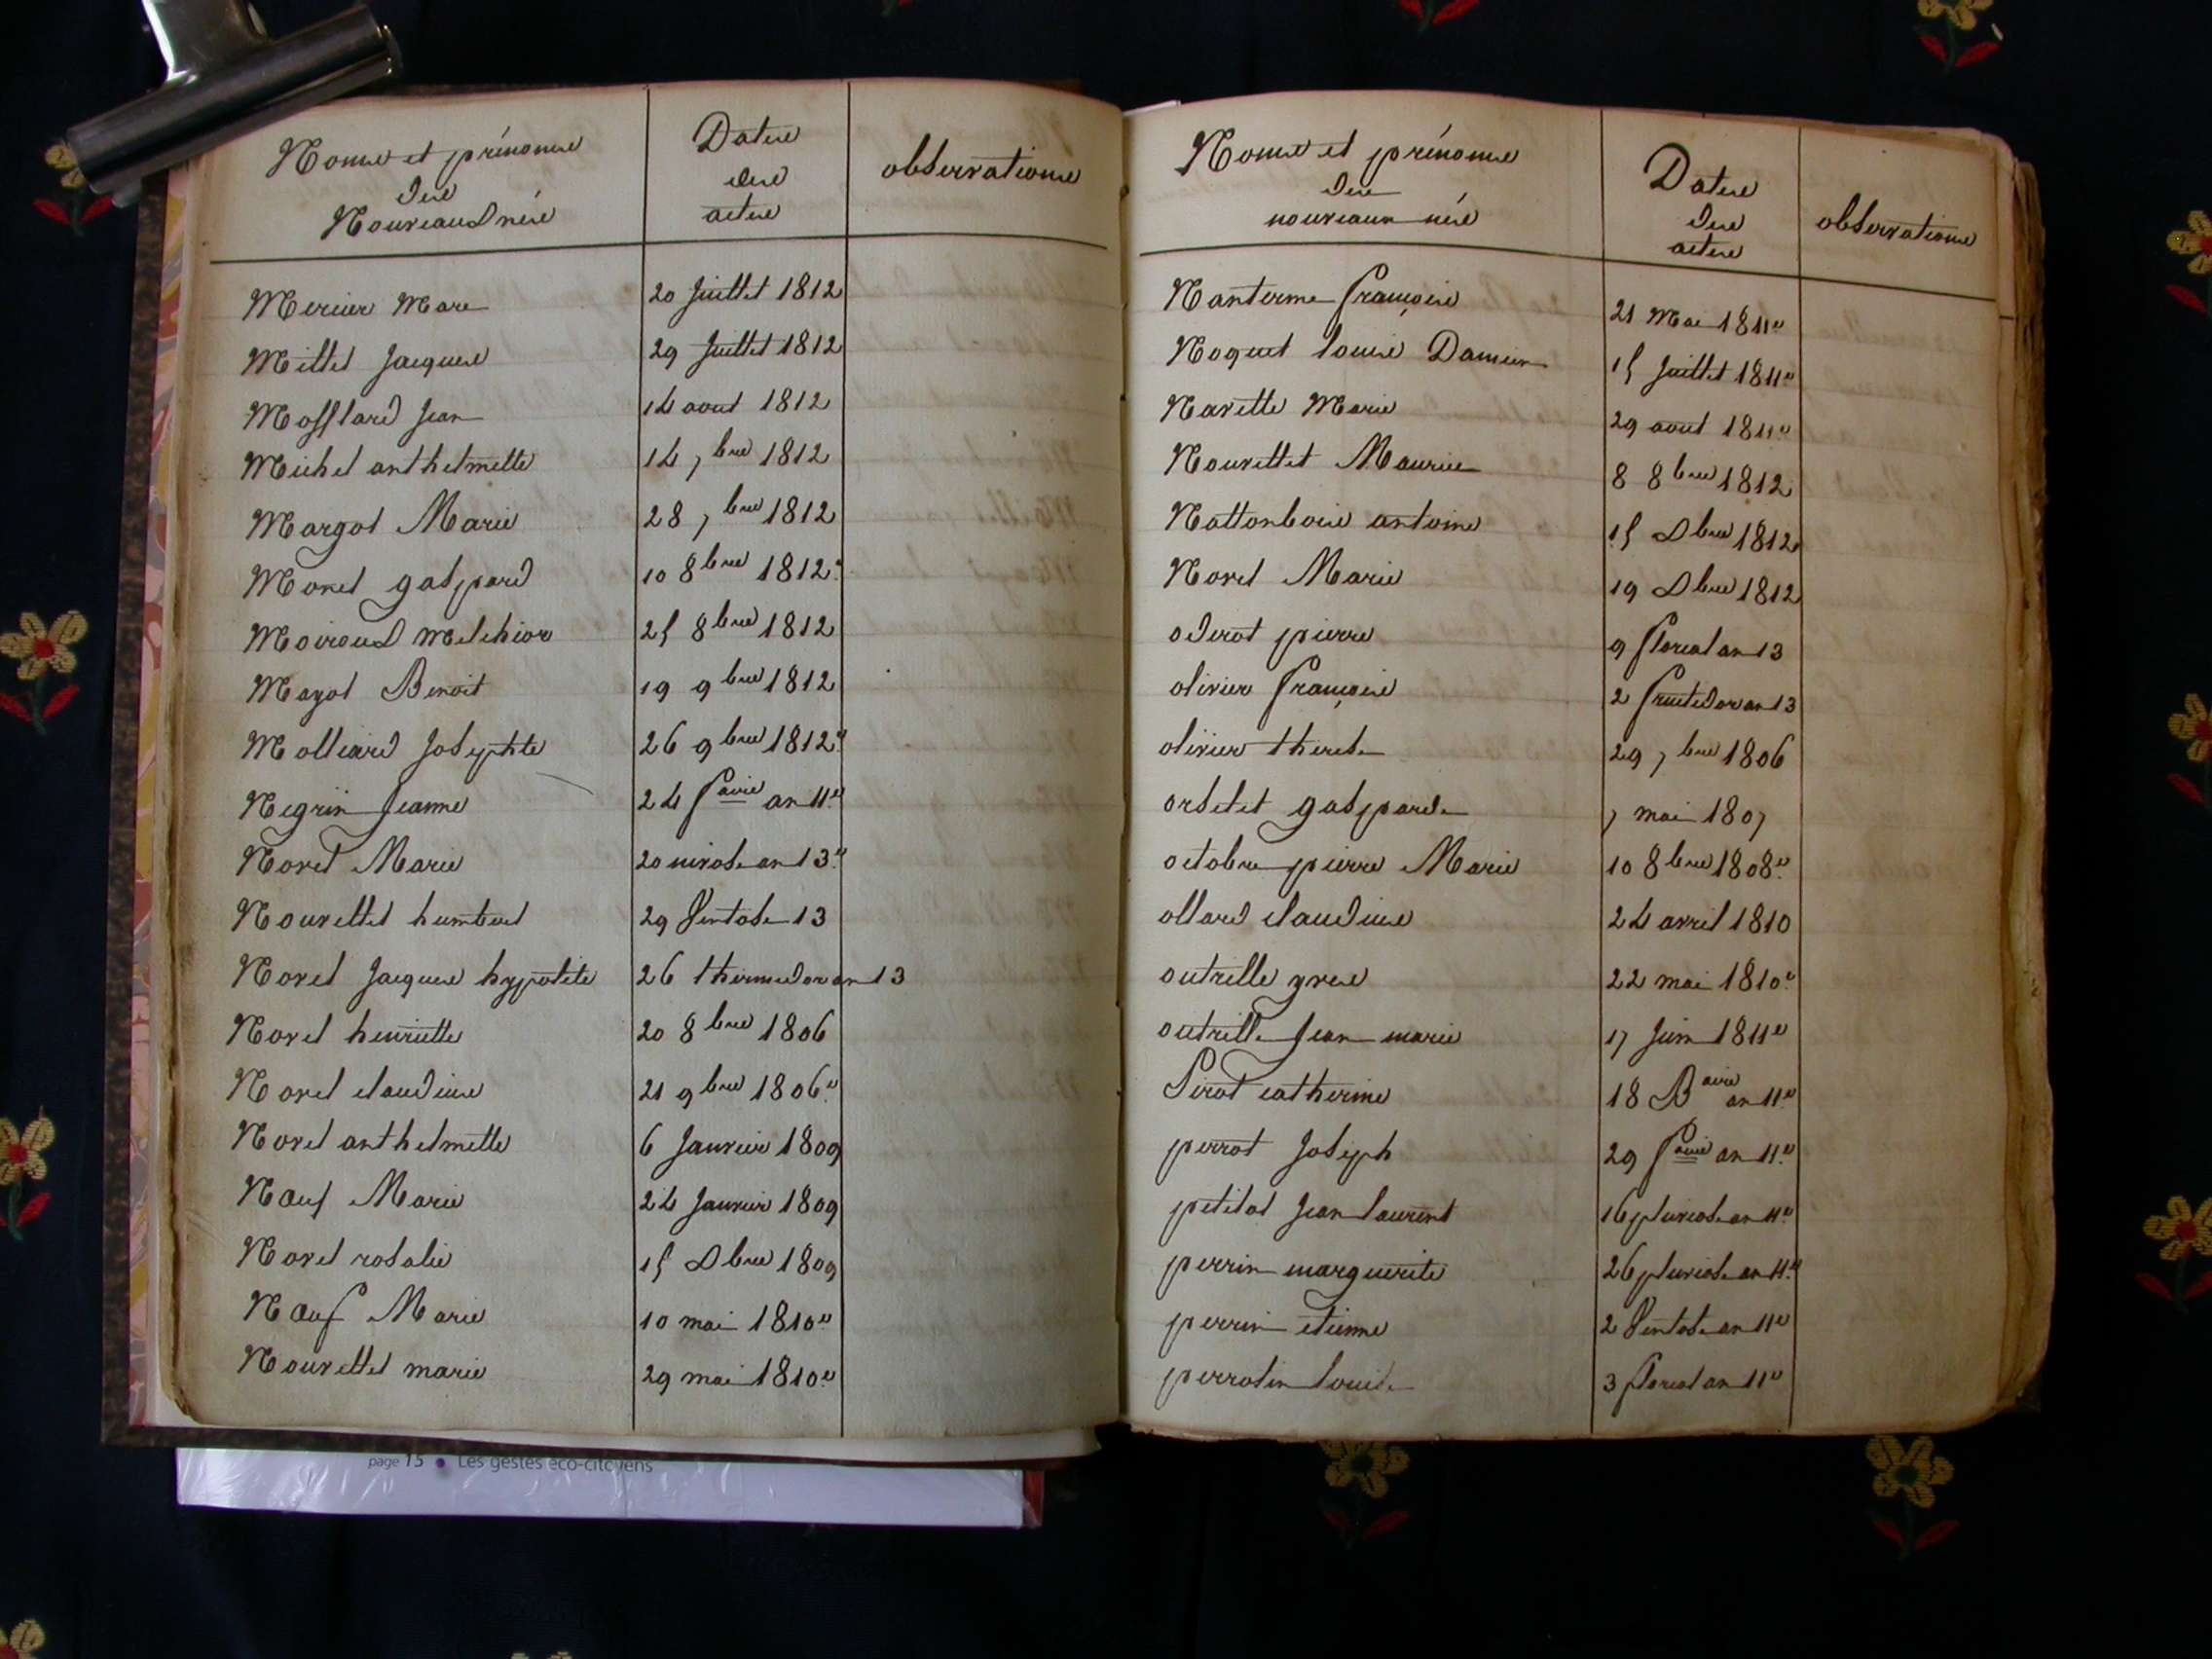 Noms et prénoms
des
Nouveaux nés
Dates
des
actes
observations
Mercier Marc 20 Juillet 1812
Millet Jacques 29 Juillet 1812
Mosslard Jean 14 aout 1812
Michel anthelmette 14 7bre 1812
Margot Marie 28 7bre 1812
Moret gaspard 10 8bre 1812.
Moiroud Melchior 25 8bre 1812
Magot Benoit 19 9bre 1812
Molliard Josephte 26 9bre 1812.
Negrin Jeanne 24 Faire an 11.
Norel Marie 20 nivose an 13.
Nourettet humbert 29 Ventose 13
Norel Jacques hypolite 26 thermidor an 13
Norel henriette 20 8bre 1806
Norel claudine 21 9bre 1806.
Norel anthelmette 6 Janvier 1809
Nauf Marie 24 Janvier 1809
Norel rosalie 15 Xbre 1809
Nauf Marie 10 mai 1810
Nourettet marie 29 mai 1810.
page 15 • Les gestes éco-citoyens
Noms et prénoms
des
nouveaux nés
Dates
des
actes
observations
Nanterme François 21 Mai 1811
Noquet louis Damien 15 Juillet 1811
Navette Marie 29 aout 1811
Nourettet Maurice 8 8bre 1812
Nattonbois antoine 15 Xbre 1812
Norel Marie 19 Xbre 1812
oderot pierre 9 floreal an 13
olivier François 2 Fructidor an 13
olivier therese 29 7bre 1806
orsetet gasparde 7 mai 1807
octobre pierre Marie 10 8bre 1808.
ollard claudine 24 avril 1810
outrelle yves 22 mai 1810.
outrille Jean marie 17 Juin 1811
Pirot catherine 18 Baire an 11
perrot Joseph 29 Faire an 11.
petitot Jean laurent 16 pluviose an 11.
perrin marguerite 26 pluviose an 11.
perrin etienne 2 Ventose an 11
perrotin louise 3 floreal an 11